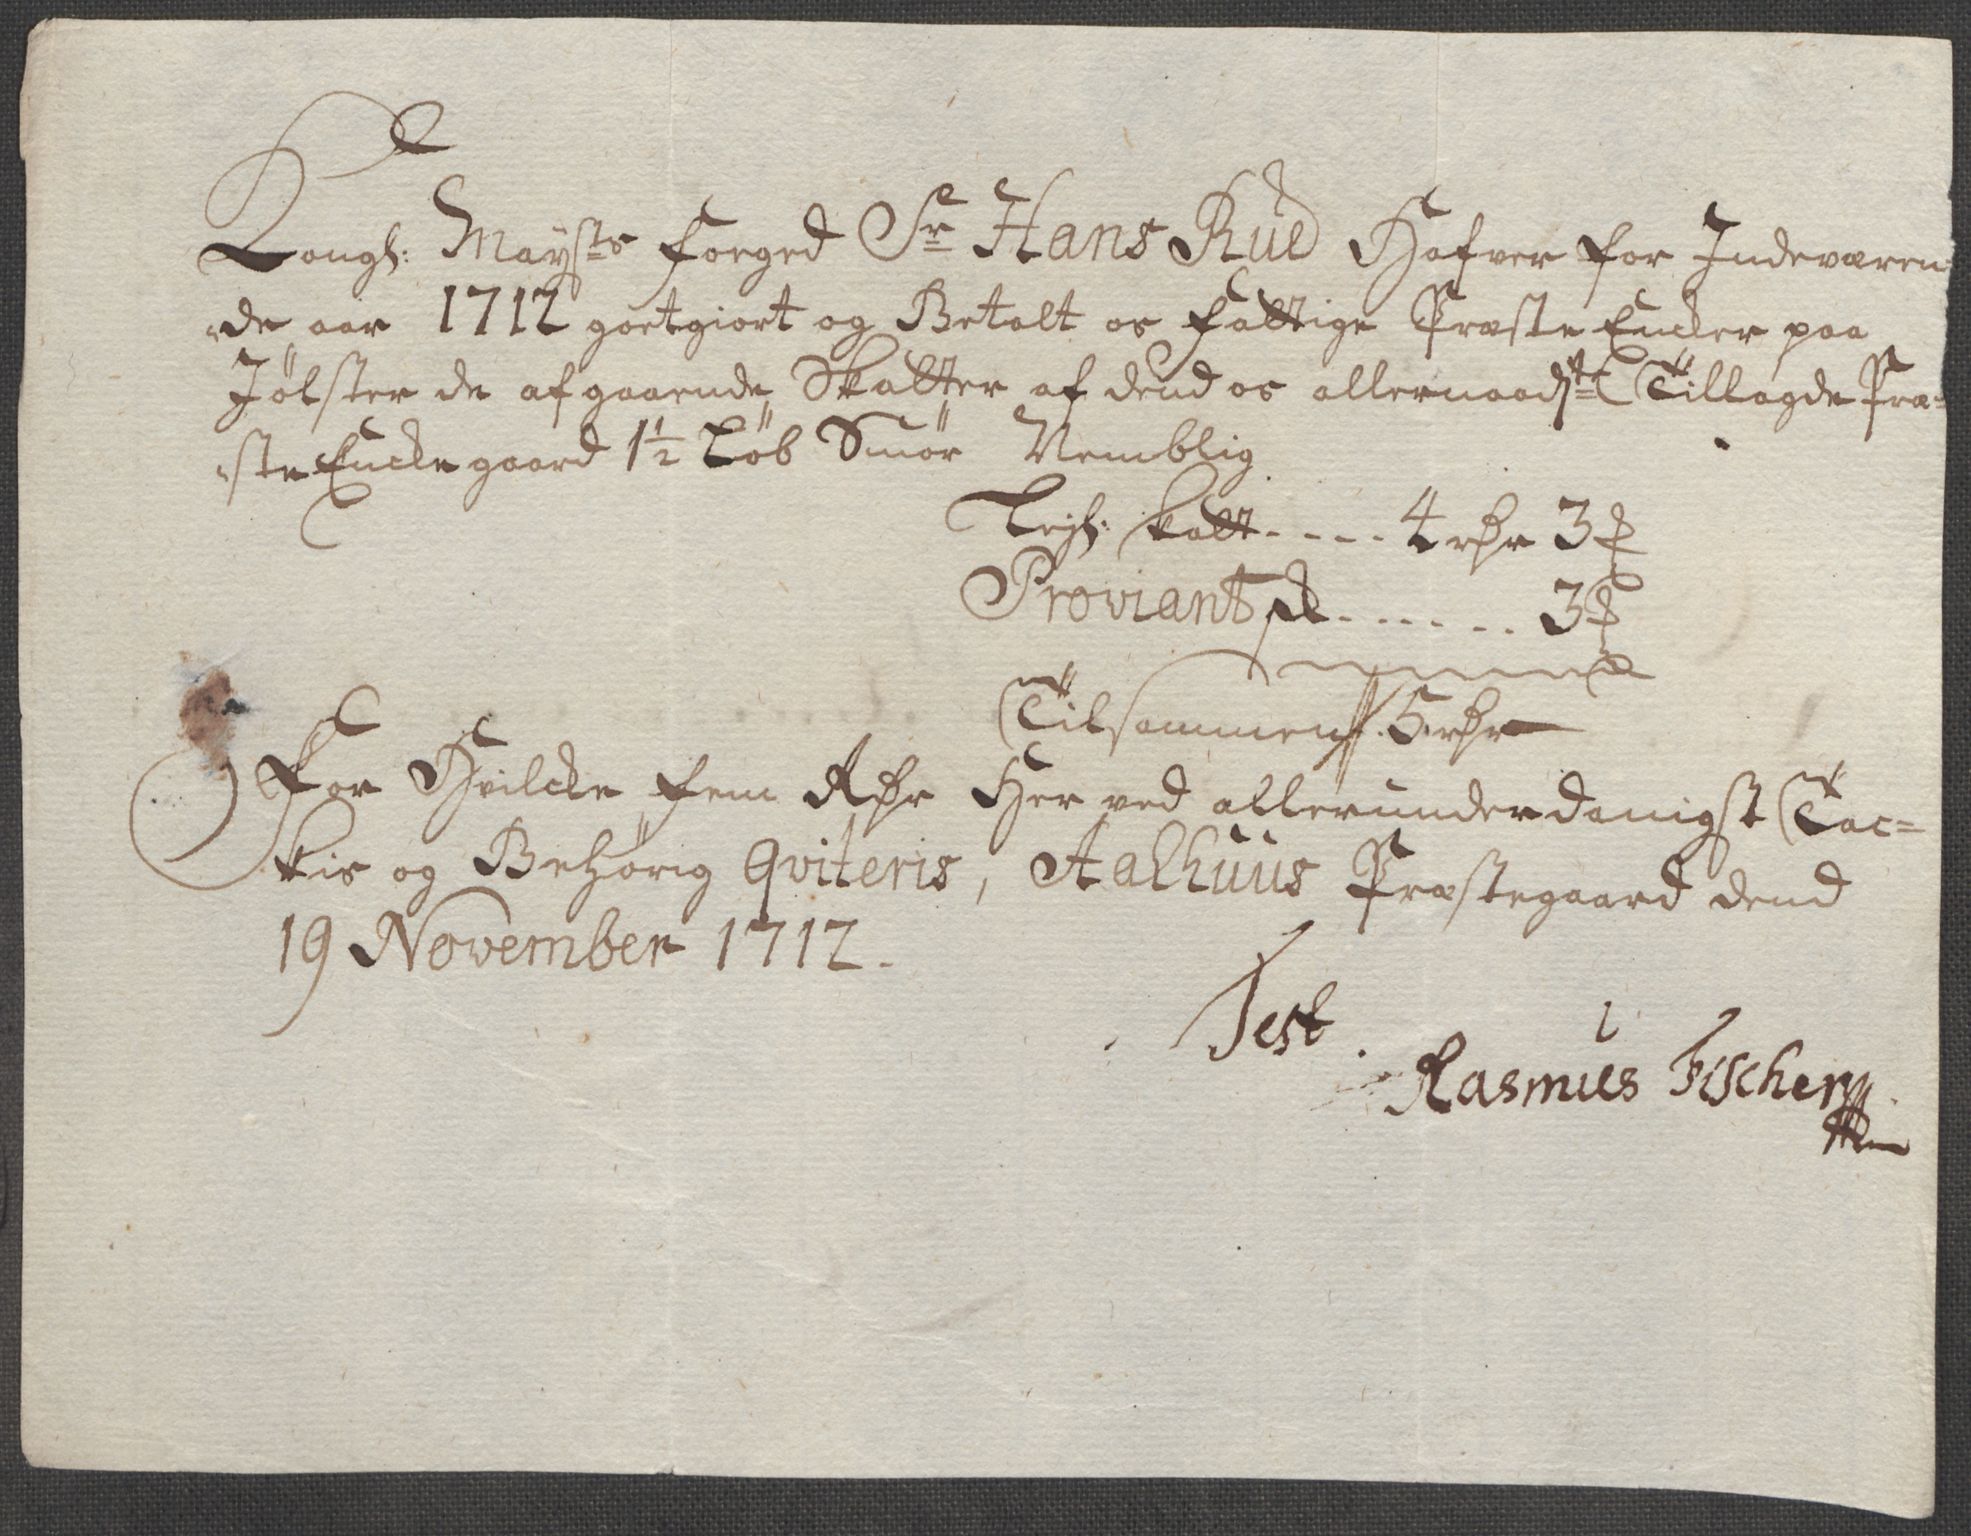 Kongl: Mayts foeged Sr Hans Rud Hafver for Indeværen
de aar 1712 goetgiort og Betalt os fattige Præste Encker paa
Jølster de afgaaende Skatter af dend os allernaadst Tillagde Præ-
ste Encke gaard 1½ Løb Smør Nemblig
Lejl: skatt ..... 4 rdr 3
Proviant ....... 3
Tilsammen 5 rdr
For Hvilcke fem Rdr Her ved allerunderdanigst Tac=
kis og Behørig qviteris, Aalhuus Præstegaard dend
19 November 1712.
Test
Rasmus Fischer